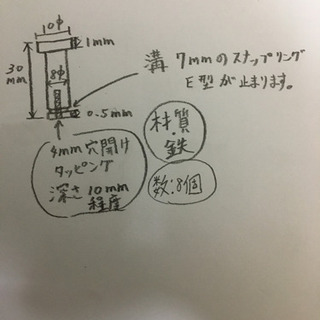 10φ
1mm
30
mm
8φ
0.5mm
溝 7mmのスナップリング
E型が止まります。
4mm穴開け
タッピング
深さ10mm
程度
材質
鉄
数:8個